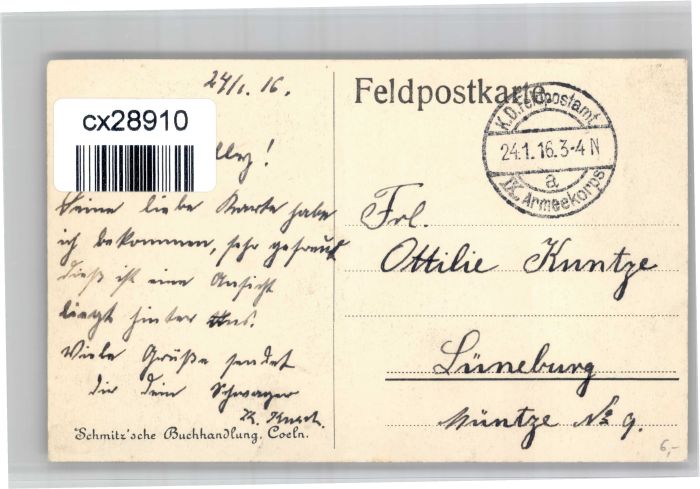 24/1. 16.
cx28910
Deine liebe Karte habe
ich bekommen, sehr gefreut
dieß ist eine Ansicht
liegt hinter uns.
Viele Grüße sendet
dir dein Schwager
'Schmitz'sche Buchhandlung, Coeln.
Feldpostkarte
K.D. Feldpostamt
24.1.16.3-4 N
a
IX. Armeekorps
Frl.
Ottilie Kuntze
Lüneburg
Müntze No 9.
6,-